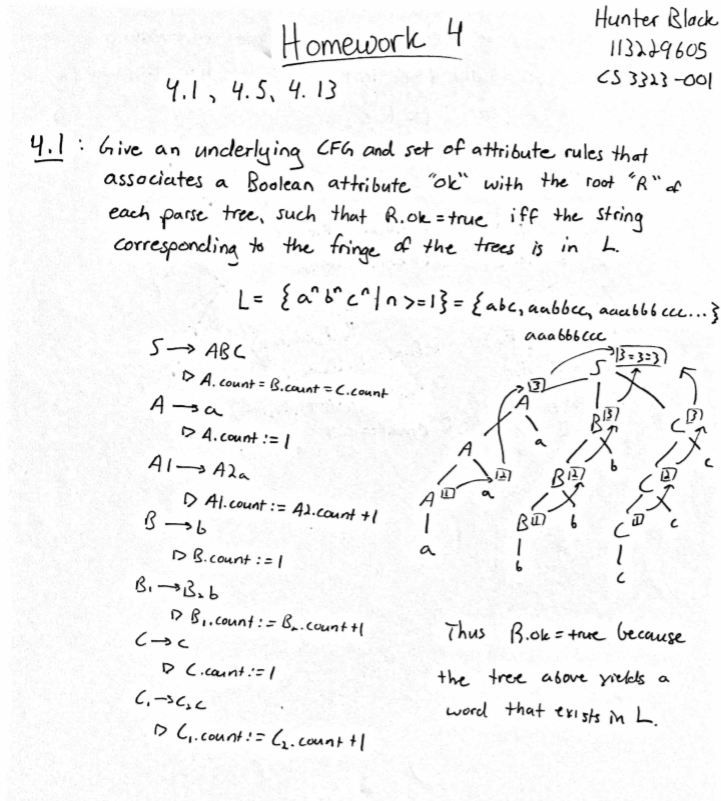 Homework 4
Hunter Black
113229605
CS 3323-001
4.1, 4.5, 4.13
4.1: Give an underlying CFG and set of attribute rules that
associates a Boolean attribute "ok" with the root "R" of
each parse tree, such that R.ok = true iff the string
corresponding to the fringe of the trees is in L.
L = {aⁿbⁿcⁿ | n >= 1} = {abc, aabbcc, aaabbbccc...}
S → ABC
▷ A.count = B.count = C.count
A → a
▷ A.count := 1
A1 → A2a
▷ A1.count := A2.count +1
B → b
▷ B.count := 1
B₁ → B₂b
▷ B₁.count := B₂.count +1
C → c
▷ C.count := 1
C₁ → C₂c
▷ C₁.count := C₂.count +1
aaabbbccc
S 3=3=3
A 3
B 3
C 3
A
a
2
B 2
b
C 2
c
A 1
a
B 1
b
C 1
c
a
b
c
Thus R.ok = true because
the tree above yields a
word that exists in L.